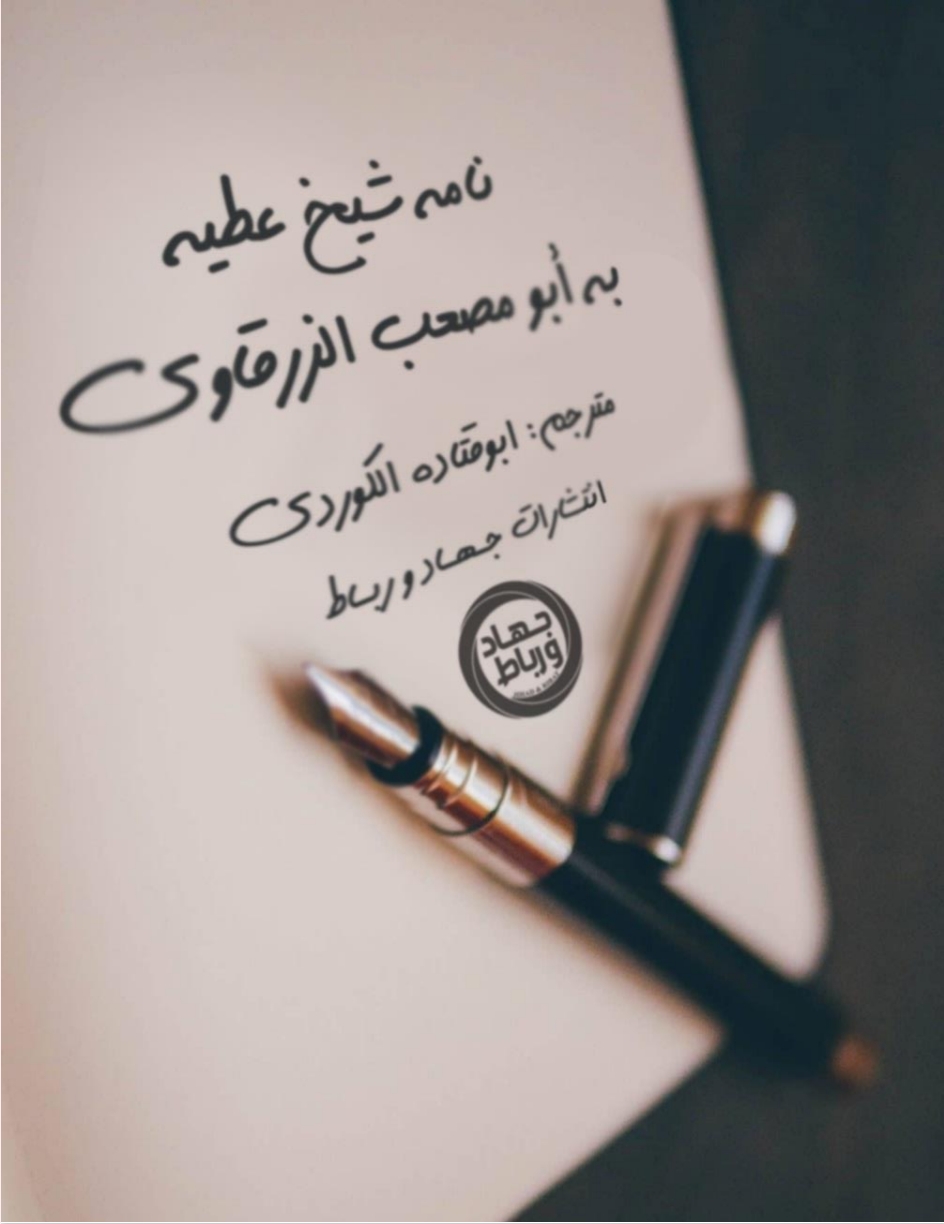 نامه شیخ عطیه
به أبو مصعب الزرقاوی
مترجم: ابوقتاده الکوردی
انتشارات جهاد و رباط
جهاد
و رباط